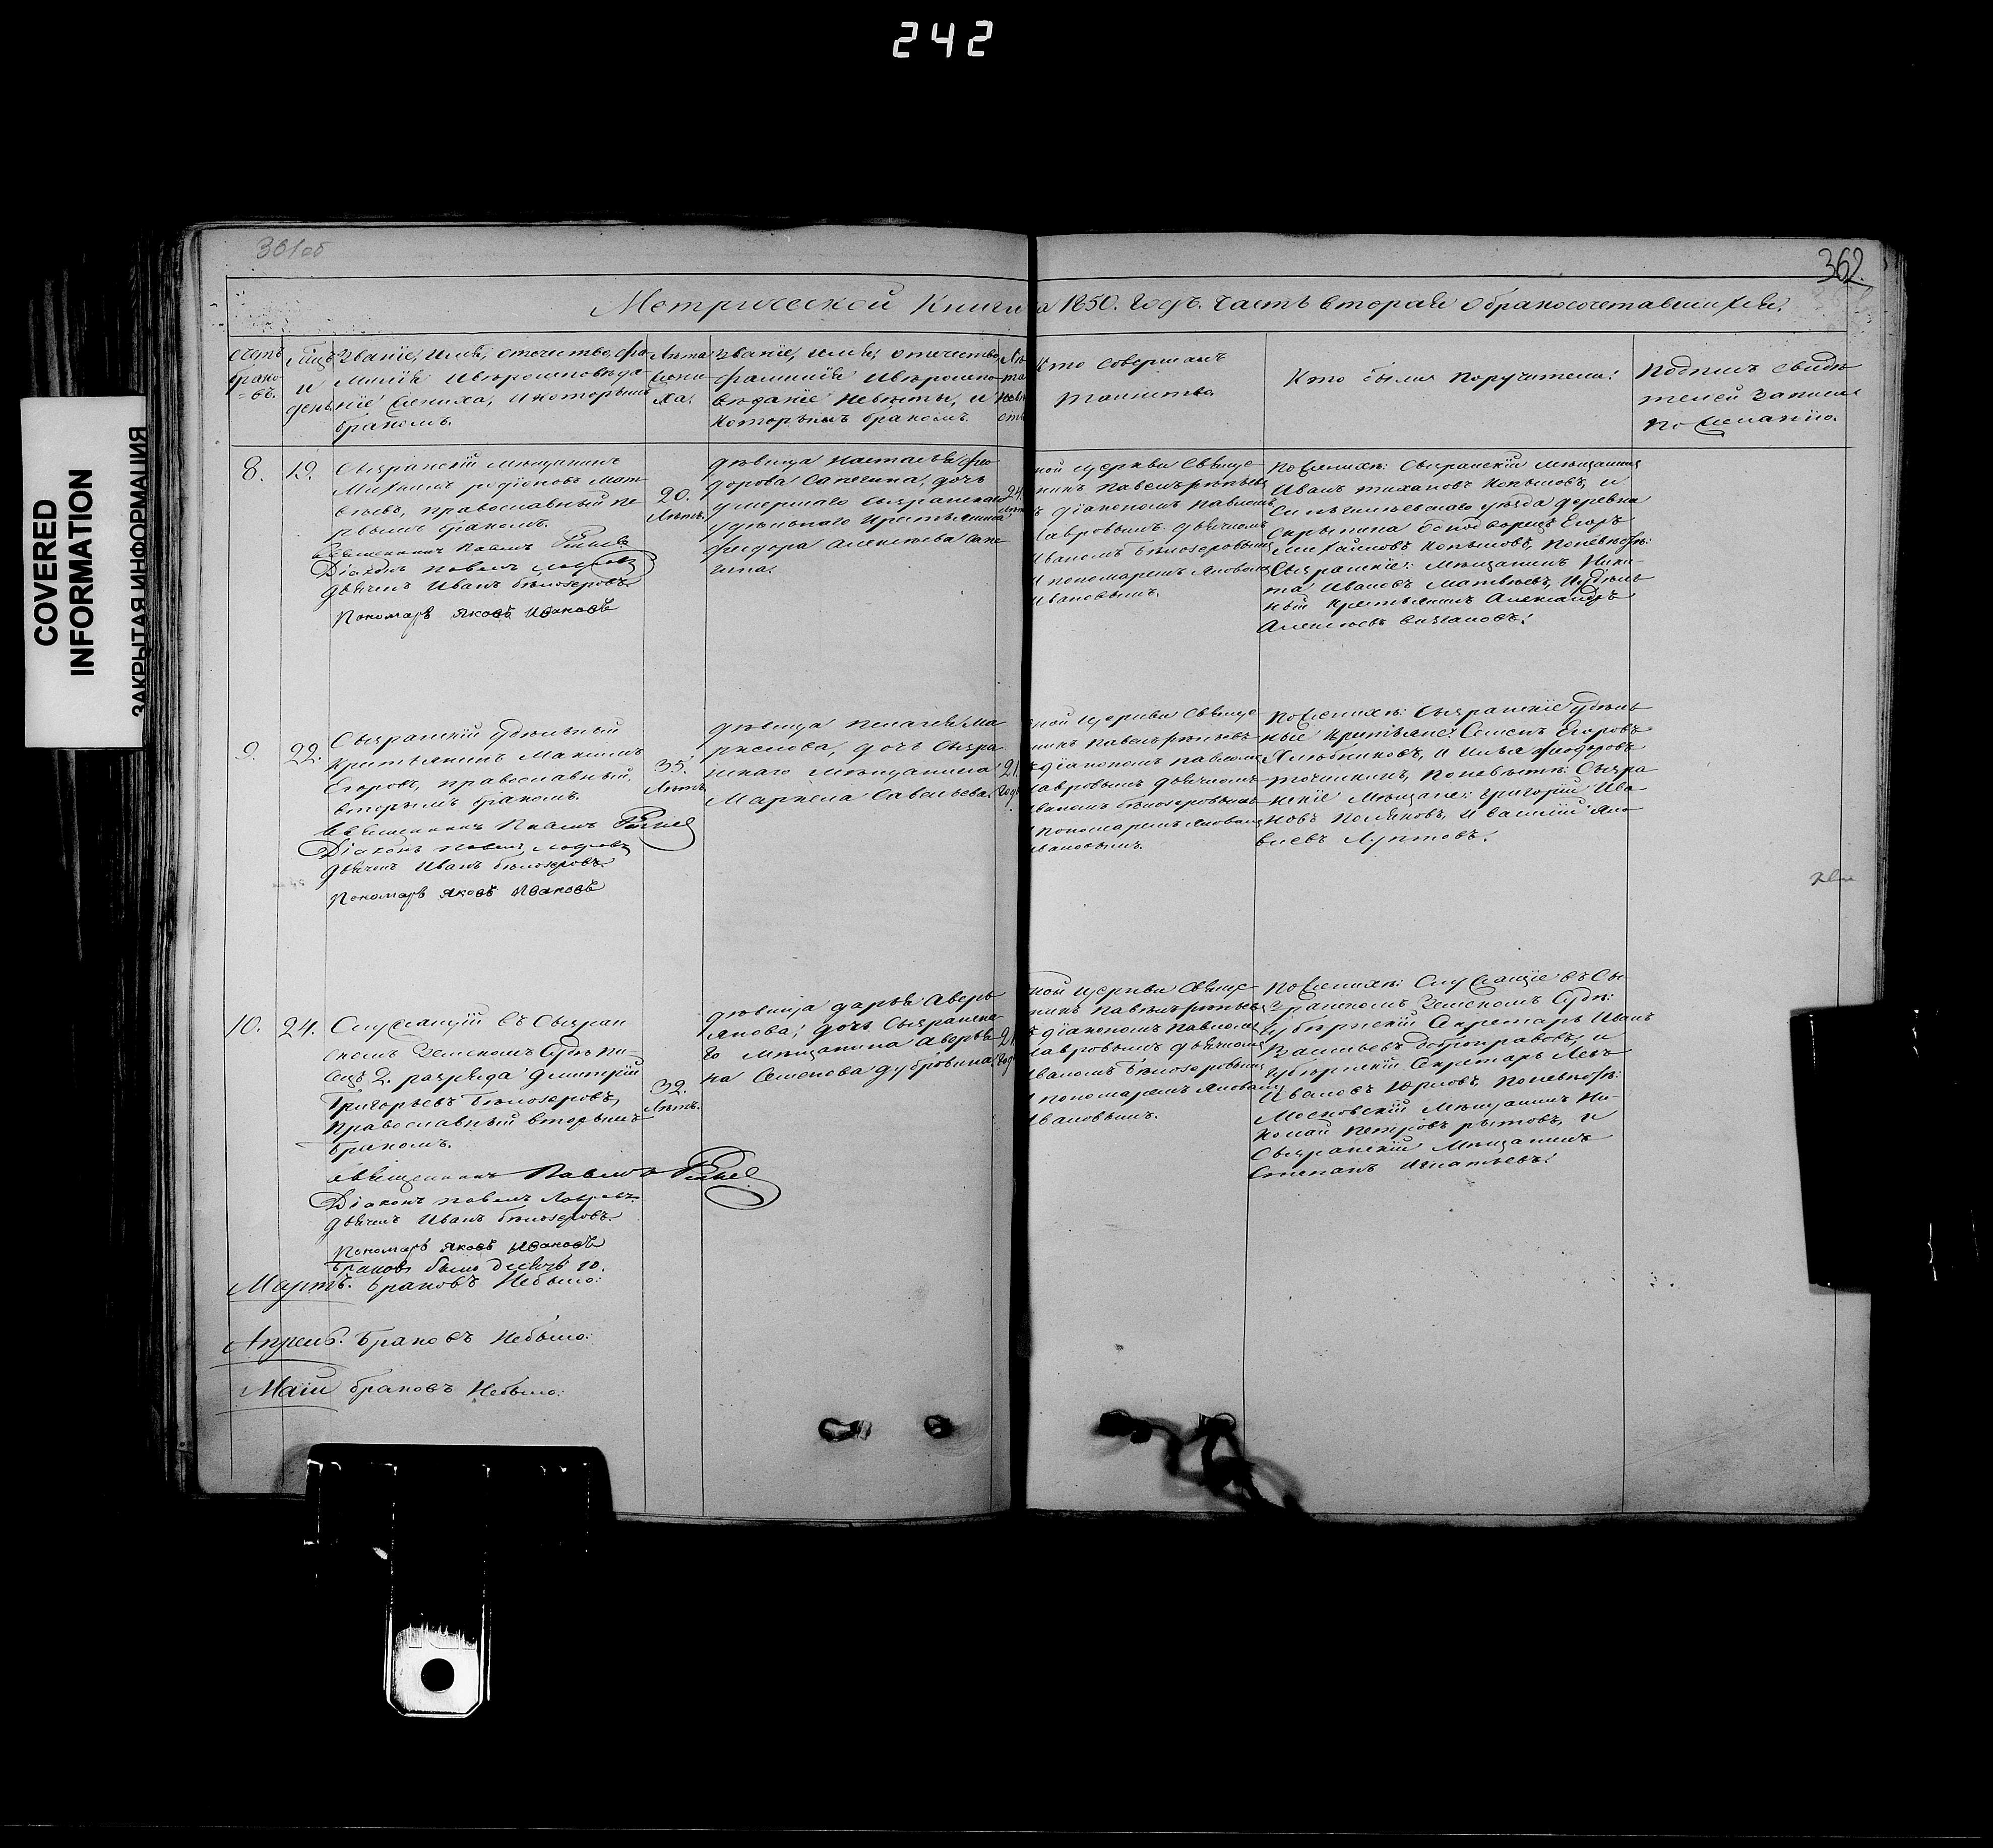 242
COVERED
INFORMATION
ЗАКРЫТАЯ ИНФОРМАЦИЯ
361об
362
Метрической Книги на 1850. годъ. Часть вторая о бракосочетавшихся.
Счетъ
брако-
въ.
Мцъ
и
день.
Званіе, имя, отечество, фа-
милія и вѣроисповѣда-
ніе жениха, и которымъ
бракомъ.
Лѣта
жени-
ха.
Званіе, имя, отечество,
фамилія и вѣроиспо-
вѣданіе невѣсты, и
которымъ бракомъ.
Лѣ-
та
невѣ-
сты
Кто совершалъ
таинство.
Кто были поручители:
Подпись свидѣ-
телей записи
по желанію.
8.
12.
Сызранскій мѣщанинъ
Михаилъ родіоновъ Мат-
вѣевъ, православный пе-
рвымъ бракомъ.
Священникъ Павелъ
Діаконъ Павелъ Лавровъ
дьячекъ Иванъ Бѣлозеровъ
Пономарь Яковъ Ивановъ
20.
лѣтъ.
дѣвица Наталья Фео-
дорова Сапегина, дочь
умершаго сызранскаго
удѣльнаго крестьянина
Федора Алексѣева Сапе-
гина.
24.
ной церкви Свяще-
никъ Павелъ
діакономъ Павломъ
Лавровымъ дьячкомъ
Иваномъ Бѣлозеровымъ
и пономаремъ Яковомъ
Ивановымъ.
По женихѣ: Сызранскій мѣщанинъ
Иванъ Тихановъ Копыловъ, и
уѣзда деревни
Скрыпина Господворецъ Егоръ
Михайловъ Копыловъ, по невѣстѣ:
Сызранскіе: Мѣщанинъ Ники-
та Ивановъ Матвѣевъ, и удѣль-
ный крестьянинъ Александръ
Алексѣевъ
9.
22.
Сызранскій удѣльный
крестьянинъ Максимъ
Егоровъ, православный,
вторымъ бракомъ.
Священникъ Павелъ
Діаконъ Павелъ Лавровъ
дьячекъ Иванъ Бѣлозеровъ
Пономарь Яковъ Ивановъ
35.
лѣтъ.
дѣвица Пелагея Ма-
ркелова, дочь Сызра-
нскаго мѣщанина
Маркела Савельева.
21.
годъ
ной церкви Свяще-
никъ Павелъ
діакономъ Павломъ
Лавровымъ дьячкомъ
Иваномъ Бѣлозеровымъ
и пономаремъ Яковомъ
Ивановымъ.
По женихѣ: Сызранскіе удѣль-
ные крестьяне: Семенъ Егоровъ
и Илья Феодоровъ
Точилкинъ, по невѣстѣ: Сызра-
нскіе мѣщане: Григорій Ива-
новъ Поляковъ, и Василій Яко-
влевъ Луптовъ.
10.
24.
Служащій въ Сызран-
скомъ Земскомъ Судѣ пи-
сецъ 2. разряда Дмитрій
Григорьевъ Бѣлозеровъ,
Православный вторымъ
бракомъ.
Священникъ Павелъ
Діаконъ Павелъ Лавровъ
дьячекъ Иванъ Бѣлозеровъ
Пономарь Яковъ Ивановъ
Браковъ было десять 10.
32.
лѣтъ.
дѣвица Дарья Аверь-
янова, дочь Сызранска-
го мѣщанина Аверья-
на Семенова Дубровина.
21.
годъ
ной церкви Свяще-
никъ Павелъ
діакономъ Павломъ
Лавровымъ дьячкомъ
Иваномъ Бѣлозеровымъ
и пономаремъ Яковомъ
Ивановымъ.
По женихѣ: Служащіе въ Сы-
зранскомъ Земскомъ Судѣ:
Губернскій Секретарь Иванъ
Васильевъ Добронравовъ, и
Губернскій Секретарь Левъ
Ивановъ Юрловъ, по невѣстѣ:
Московскій мѣщанинъ Ни-
колай Петровъ Рытовъ, и
Сызранскій Мѣщанинъ
Степанъ Игнатьевъ.
Мартъ. Браковъ Небыло.
Апрель. Браковъ Небыло.
Маій браковъ Небыло.